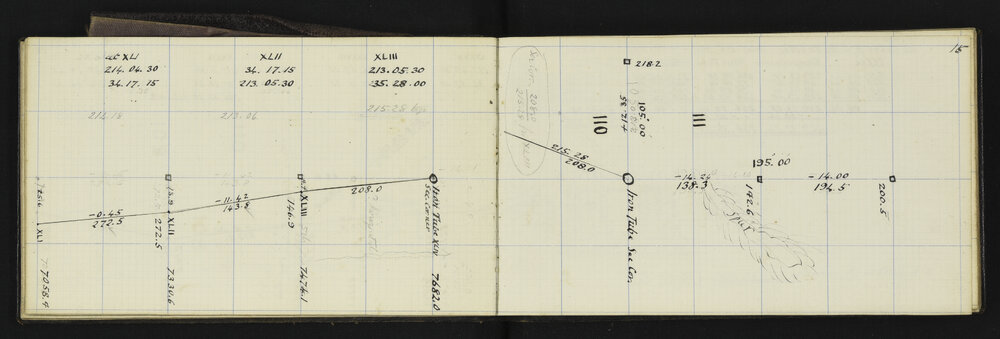 at XLI
214. 04. 30
34. 17. 15
XLII
34. 17. 15
213. 05. 30
XLIII
213. 05. 30
35. 28. 00
213.18
213.06
215.28
-0.45
272.5
XLI
7058.4
13.9
XLII
272.5
7330.6
-11.42
143.8
XLIII
146.9
7474.1
208.0
Iron Tube XLIV
Sec. Corner
7682.0
15
2080
215.28
218.2
105.00
58 21.7
110
111
215.28
208.0
Iron Tube Sec Cor.
-14.24
138.3
195.00
142.6
Spur
-14.00
194.5
200.5